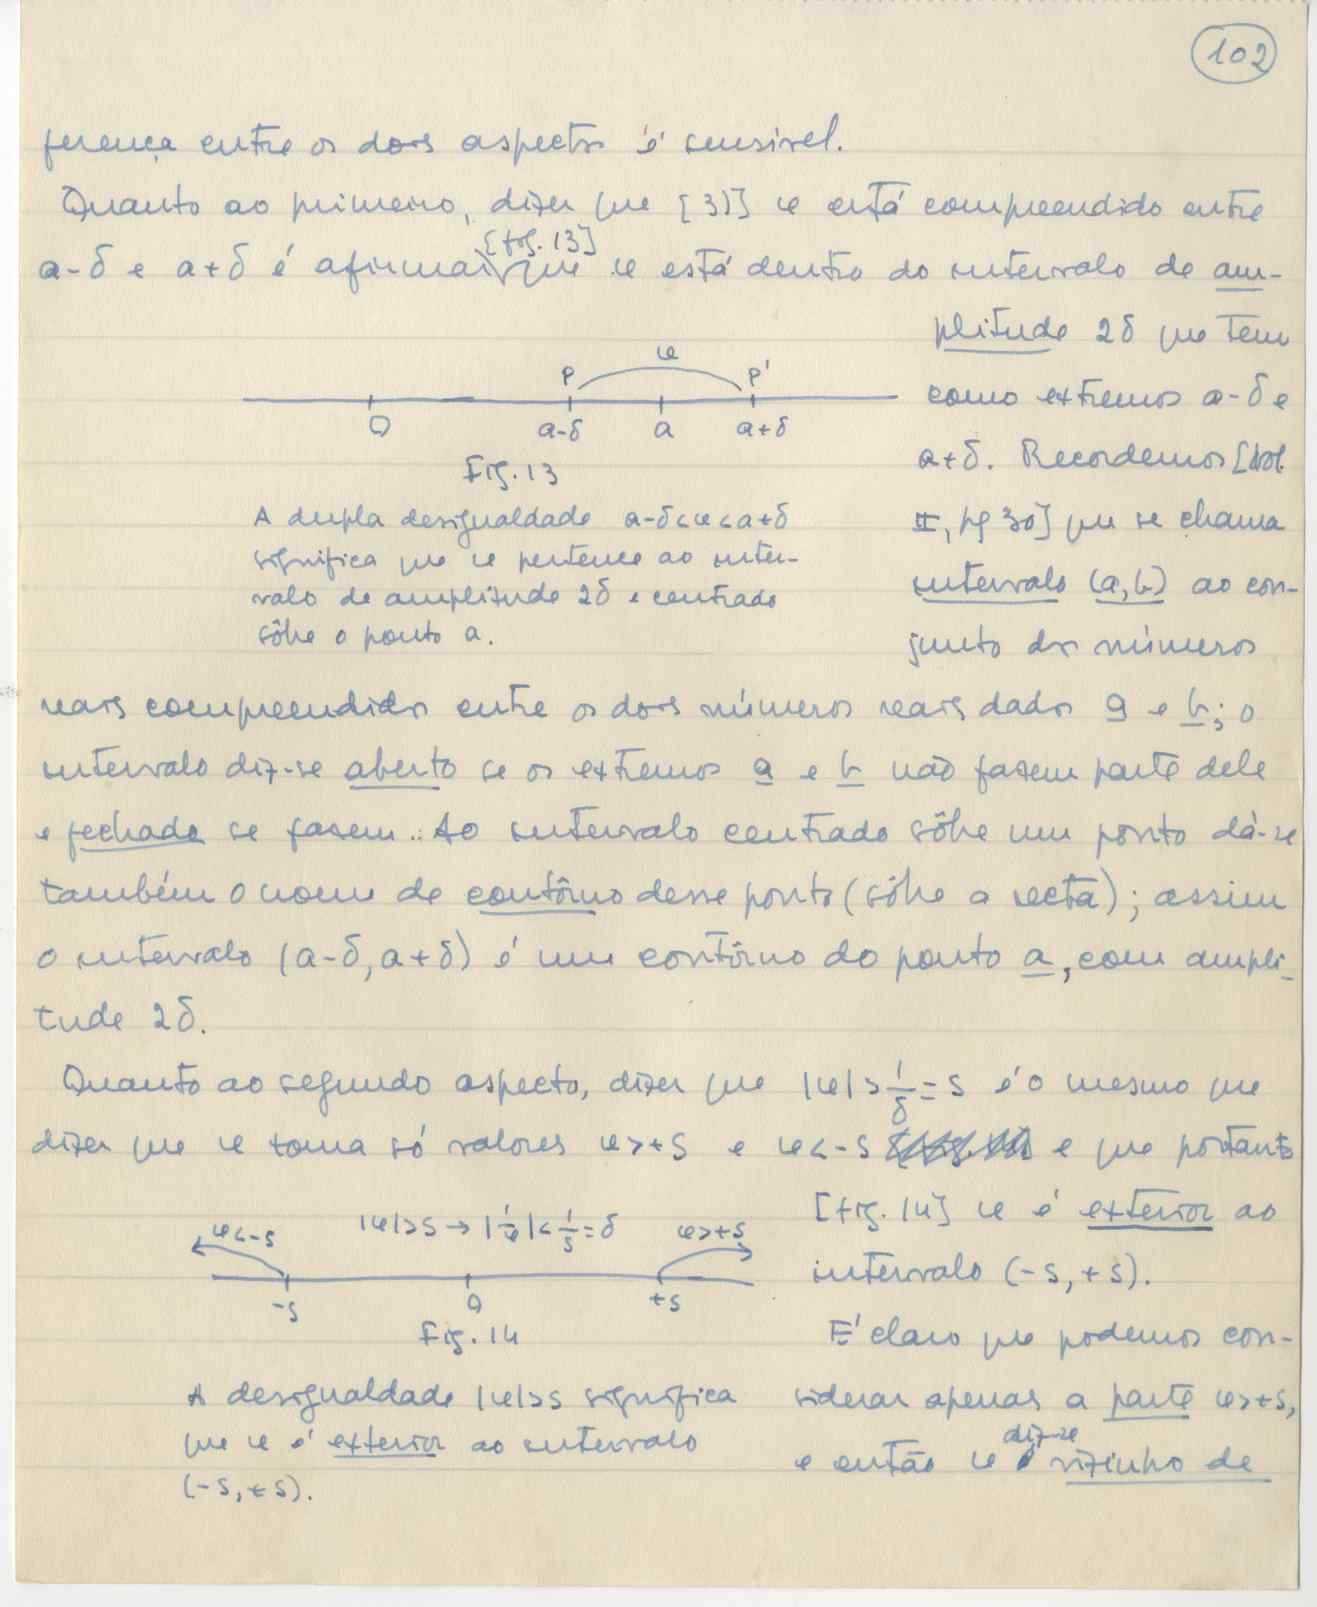 102
ferença entre os dois aspectos é sensível.
Quanto ao primeiro, dizer que [3)] u está compreendido entre
[fig. 13]
a-δ e a+δ é afirmar que u está dentro do intervalo de am-
plitude 2δ que tem
como extremos a-δ e
a+δ. Recordemos [vol.
II, pg 30] que se chama
intervalo (a,b) ao con-
junto dos números
u
P P'
O a-δ a a+δ
Fig. 13
A dupla desigualdade a-δ<u<a+δ
significa que u pertence ao inter-
valo de amplitude 2δ e centrado
sôbre o ponto a.
reais compreendidos entre os dois números reais dados a e b; o
intervalo diz-se aberto se os extremos a e b não fazem parte dele
e fechado se fazem. Ao intervalo centrado sôbre um ponto dá-se
também o nome de contôrno desse ponto (sôbre a recta); assim
o intervalo (a-δ, a+δ) é um contôrno do ponto a, com ampli-
tude 2δ.
Quanto ao segundo aspecto, dizer que |u|>1/δ=S é o mesmo que
dizer que u toma só valores u>+S e u<-S e que portanto
[fig. 14] u é exterior ao
intervalo (-S,+S).
E' claro que podemos con-
siderar apenas a parte u>+S,
diz-se
e então u vizinho de
u<-S |u|>S→|1/u|<1/S=δ u>+S
-S O +S
Fig. 14
A desigualdade |u|>S significa
que u é exterior ao intervalo
(-S,+S).